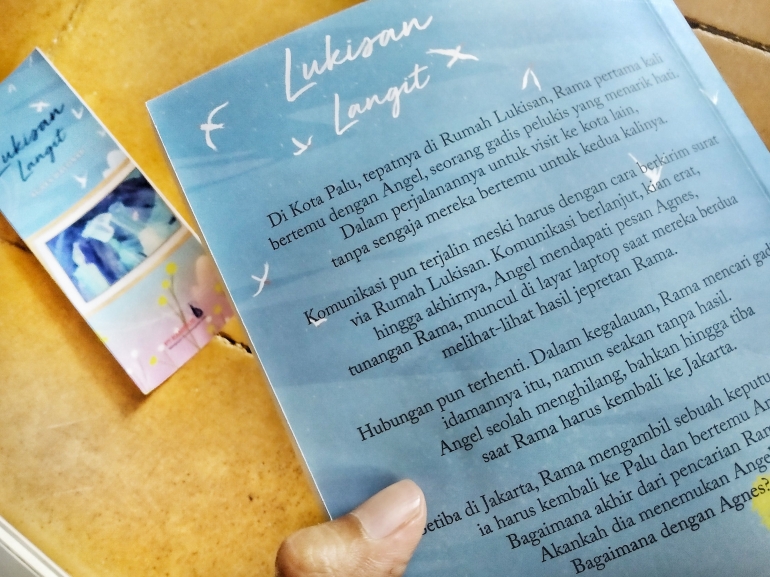 Lukisan
Langit
Lukisan
Langit
Di Kota Palu, tepatnya di Rumah Lukisan, Rama pertama kali
bertemu dengan Angel, seorang gadis pelukis yang menarik hati.
Dalam perjalanannya untuk visit ke kota lain,
tanpa sengaja mereka bertemu untuk kedua kalinya.
Komunikasi pun terjalin meski harus dengan cara berkirim surat
via Rumah Lukisan. Komunikasi berlanjut, kian erat,
hingga akhirnya, Angel mendapati pesan Agnes,
tunangan Rama, muncul di layar laptop saat mereka berdua
melihat-lihat hasil jepretan Rama.
Hubungan pun terhenti. Dalam kegalauan, Rama mencari gad
idamannya itu, namun seakan tanpa hasil.
Angel seolah menghilang, bahkan hingga tiba
saat Rama harus kembali ke Jakarta.
Setiba di Jakarta, Rama mengambil sebuah keputu
ia harus kembali ke Palu dan bertemu An
Bagaimana akhir dari pencarian Ram
Akankah dia menemukan Angel
Bagaimana dengan Agnes?